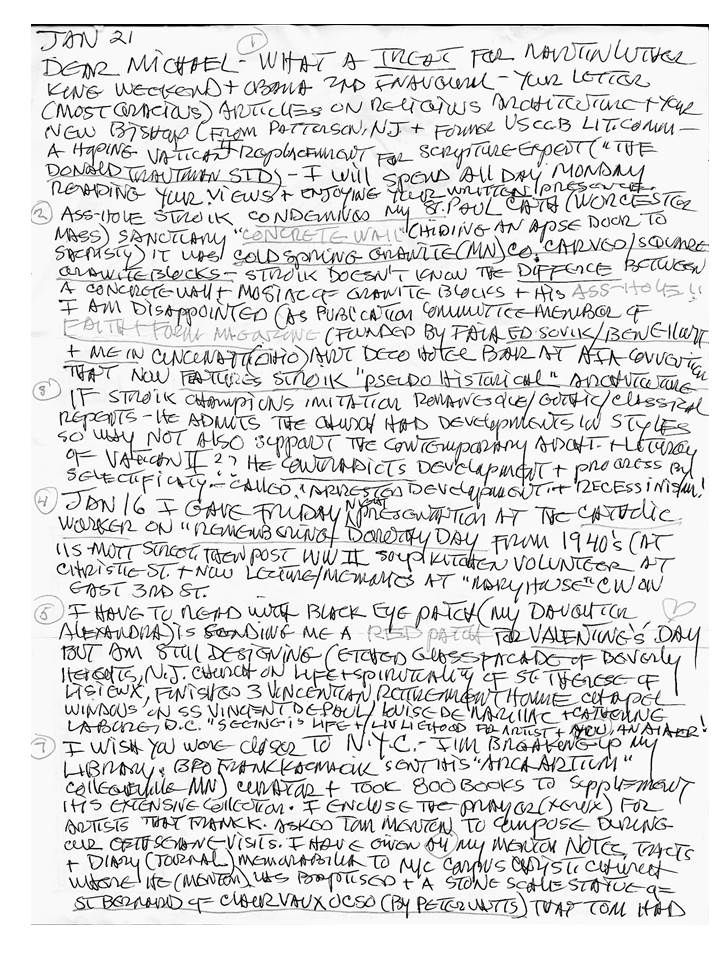 JAN 21
1
DEAR MICHAEL - WHAT A TREAT FOR MARTIN LUTHER
KING WEEKEND + OBAMA 2ND INAUGURAL - YOUR LETTER
(MOST GRACIOUS) ARTICLES ON RELIGIOUS ARCHITECTURE + YOUR
NEW BISHOP (FROM PATTERSON, NJ + FORMER USCCB LIT. COMM -
A HOPING VATICAN II REPLACEMENT FOR SCRIPTURE EXPERT ("THE
DONALD TRAUTMAN STD) - I WILL SPEND ALL DAY MONDAY
READING YOUR VIEWS + ENJOYING YOUR WRITTEN/PRESENCE.
2 ASS-HOLE STROIK CONDEMNING MY ST. PAUL CATH (WORCESTER
MASS) SANCTUARY "CONCRETE WALL" (HIDING AN APSE DOOR TO
SACRISTY) IT WAS COLD SPRING GRANITE (MN) CO. CARVED/SQUARE
GRANITE BLOCKS - STROIK DOESN'T KNOW THE DIFFENCE BETWEEN
A CONCRETE WALL + MOSIAC OF GRANITE BLOCKS + HIS ASS-HOLE!!
I AM DISAPPOINTED (AS PUBLICATION COMMITTEE MEMBER OF
FAITH + FORM MAGAZINE (FOUNDED BY FAIA ED SOVIK/BEN
+ ME IN CINCINATTI (OHIO) ART DECO HOTEL BAR AT AIA CONVENTION
THAT NOW FEATURES STROIK "PSEUDO HISTORICAL" ARCHITECTURE
3 IF STROIK CHAMPIONS IMITATION ROMANESQUE/GOTHIC/CLASSICAL
REPEATS - HE ADMITS THE CHURCH HAD DEVELOPMENTS IN STYLES
SO WHY NOT ALSO SUPPORT THE CONTEMPORARY ARCHT. + LITURGY
OF VATICAN II?? HE CONTRADICTS DEVELOPMENT + PROGRESS BY
SELECTIFICATY - CALLED "ARRESTED DEVELOPMENT + RECESSINISM!
4 JAN 16 I GAVE FRIDAY NIGHT PRESENTATION AT THE CATHOLIC
WORKER ON "REMEMBERING DOROTHY DAY FROM 1940'S (AT
115 MOTT STREET, THEN POST WW II SOUP KITCHEN VOLUNTEER AT
CHRISTIE ST. + NOW LECTURE/MEMORIES AT "MARYHOUSE" CW ON
EAST 3RD ST.
5 I HAVE TO READ WITH BLACK EYE PATCH (MY DAUGHTER
ALEXANDRA) IS SENDING ME A RED PATCH FOR VALENTINE'S DAY
BUT AM STILL DESIGNING (ETCHED GLASS FACADE OF BEVERLY
HEIGHTS, N.J. CHURCH ON LIFE + SPIRITUALITY OF ST. THERESE OF
LISIEUX, FINISHED 3 VINCENTIAN RETIREMENT HOME CHAPEL
WINDOWS ON SS VINCENT DE PAUL/LOUISE DE MARILLAC + CATHERINE
LABOURE, D.C. "SEEING IS LIFE + LIVLIEHOOD FOR ARTIST + YOU AN
7 I WISH YOU WERE CLOSER TO N.Y.C. - I'M BREAKING UP MY
LIBRARY. BRO FRANK KACMARCIK SENT HIS "ARCA ARTIUM"
COLLEGEVILLE MN) CURATOR + TOOK 800 BOOKS TO SUPPLEMENT
HIS EXTENSIVE COLLECTION. I ENCLOSE THE PRAYER (XEROX) FOR
ARTISTS THAT FRANCK. ASKED TOM MERTON TO COMPOSE DURING
OUR GETHSEMANE VISITS. I HAVE GIVEN ALL MY MERTON NOTES, TRACTS
+ DIARY (JOURNAL) MEMORABILIA TO NYC CORPUS CHRISTI CHURCH
WHERE HE (MERTON) WAS BAPTISED + A STONE SCALE STATUE OF
ST BERNARD OF CLAIRVAUX OCSO (BY PETER WATTS) THAT TOM HAD